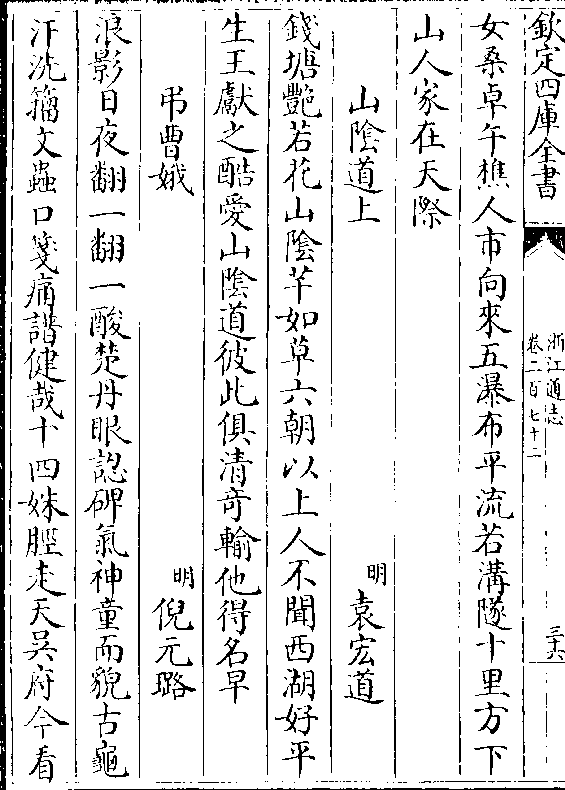 欽定四庫全書
浙江通志
卷二百七十二
三十六
女桑卓午樵人市向來五瀑布平流若溝隧十里方下
山人家在天際
山隂道上
明袁宏道
錢塘艷若花山隂芊如草六朝以上人不聞西湖好平
生王獻之酷愛山隂道彼此俱清奇輸他得名早
弔曹娥
明倪元璐
浪影日夜翻一翻一酸楚丹眼認碑氣神童而貌古龜
汗洗籕文蟲口箋痛譜健哉十四姝脛走天吳府今看